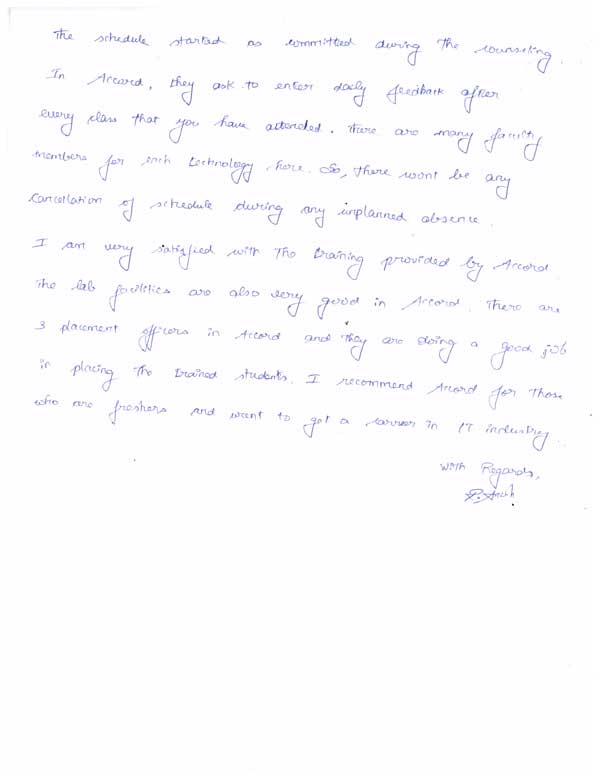 The schedule started as committed during the counseling.
In Accord, they ask to enter daily feedback after
every class that you have attended. There are many faculty
members for each technology here. So, there wont be any
Cancellation of schedule during any unplanned absence.
I am very satisfied with the training provided by Accord.
The lab facilities are also very good in Accord. There are
3 placement officers in Accord and they are doing a good job
in placing the trained students. I recommend Accord for those
who are freshers and want to get a carreer in IT industry.
With Regards,